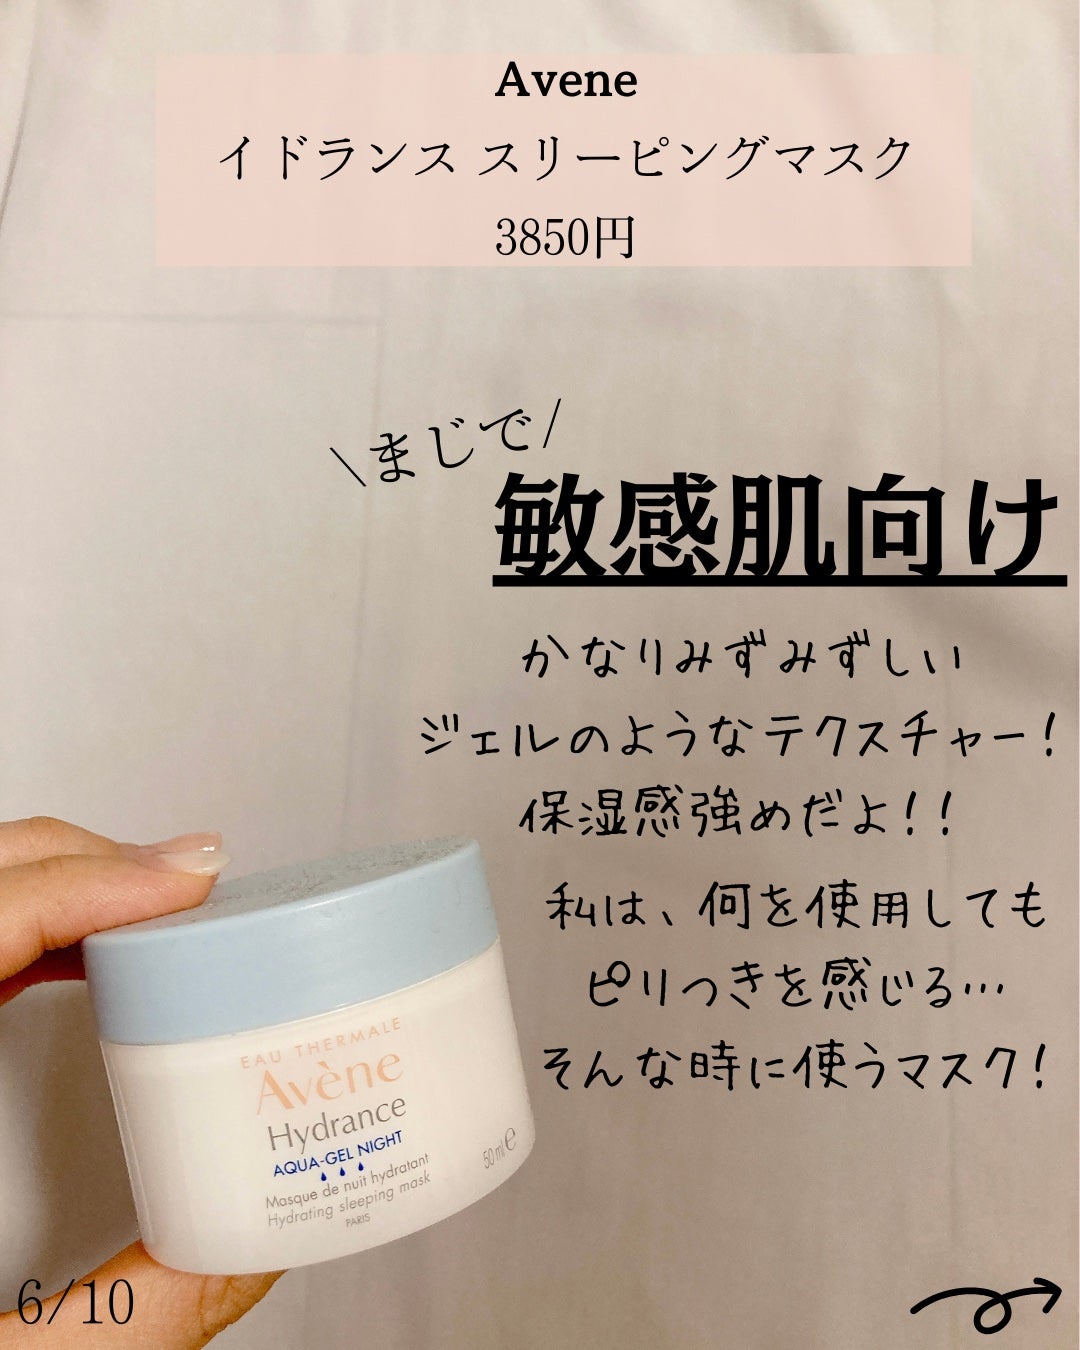 Avene
イドランス スリーピングマスク
3850円
\まじで/
敏感肌向け
かなりみずみずしい
ジェルのようなテクスチャー!
保湿感強めだよ!!
私は、何を使用しても
ピリつきを感じる…
そんな時に使うマスク!
EAU THERMALE
Avène
Hydrance
AQUA-GEL NIGHT
Masque de nuit hydratant
Hydrating sleeping mask
PARIS
50 ml e
6/10